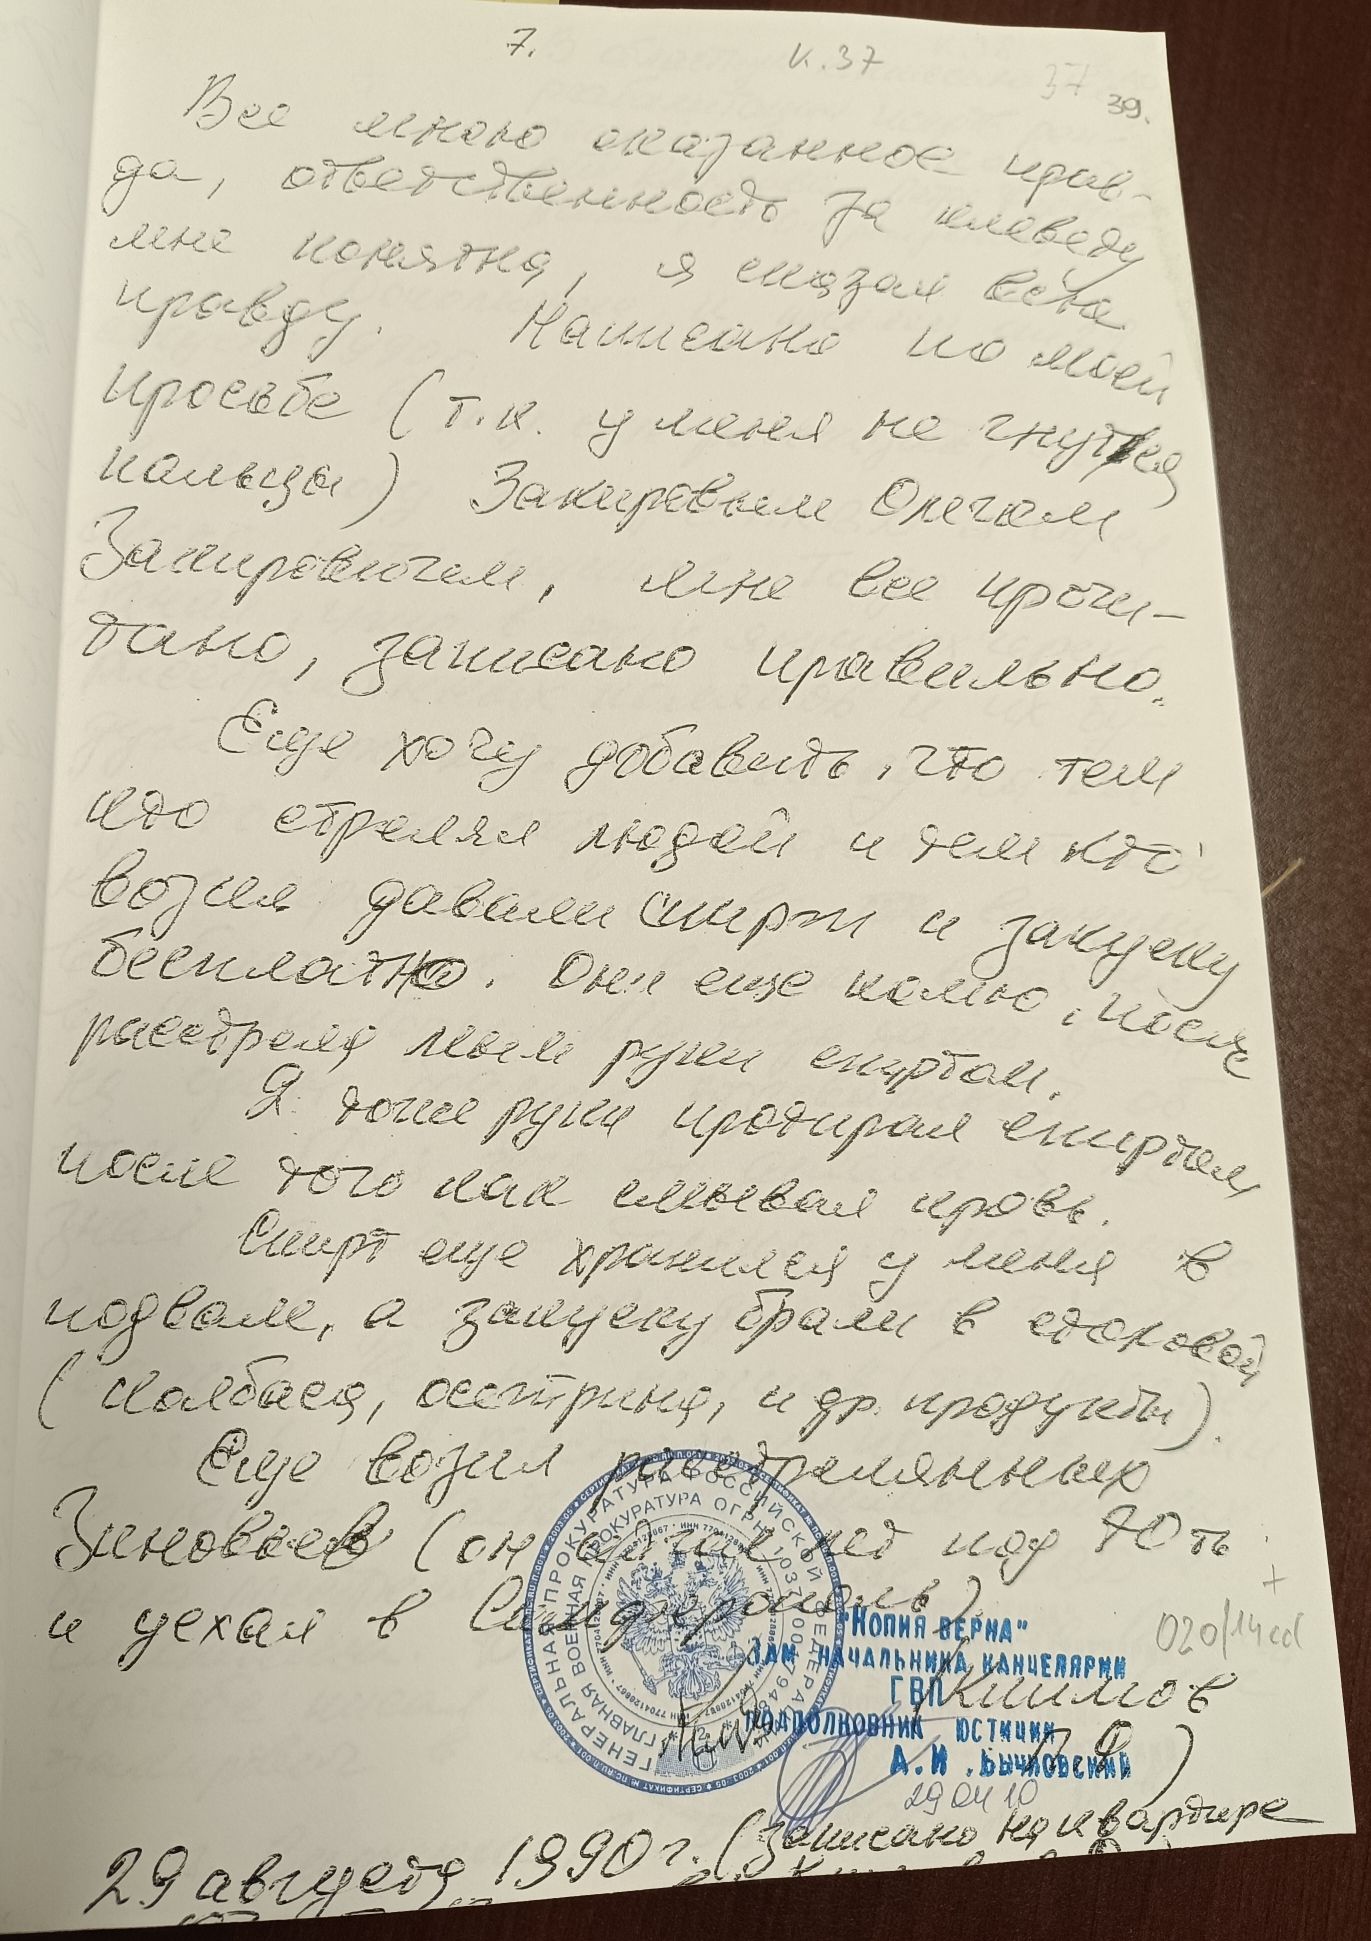 7.
к. 37
37
39.
Все мною сказанное прав-
да, ответственность за клевету
мне понятна, я сказал всю
правду. Написано по моей
просьбе (т.к. у меня не гнутся
пальцы) Закировым Олегом
Закировичем, мне все прочи-
тано, записано правильно.
Еще хочу добавить, что тем
кто стрелял людей и тем кто
возил давали спирт и закуску
бесплатно. Они еще помню, после
расстрела мыли руки спиртом.
Я тоже руки протирал спиртом
после того как смывал кровь.
Спирт еще хранился у меня в
подвале, а закуску брали в столовой
(колбаса, осетрина, и др. продукты).
Еще возил расстрелянных
Зиновьев (он сейчас лет под 70 ть
и уехал в Симферополь)
ГЕНЕРАЛЬНАЯ ПРОКУРАТУРА РОССИЙСКОЙ ФЕДЕРАЦИИ
ГЛАВНАЯ ВОЕННАЯ ПРОКУРАТУРА ОГРН
"КОПИЯ ВЕРНА"
ЗАМ НАЧАЛЬНИКА КАНЦЕЛЯРИИ
ГВП
ПОДПОЛКОВНИК ЮСТИЦИИ
А.И.БЫЧКОВСКИЙ
29 04 10
020/14cd
29 августа 1990 г. (записано на квартире